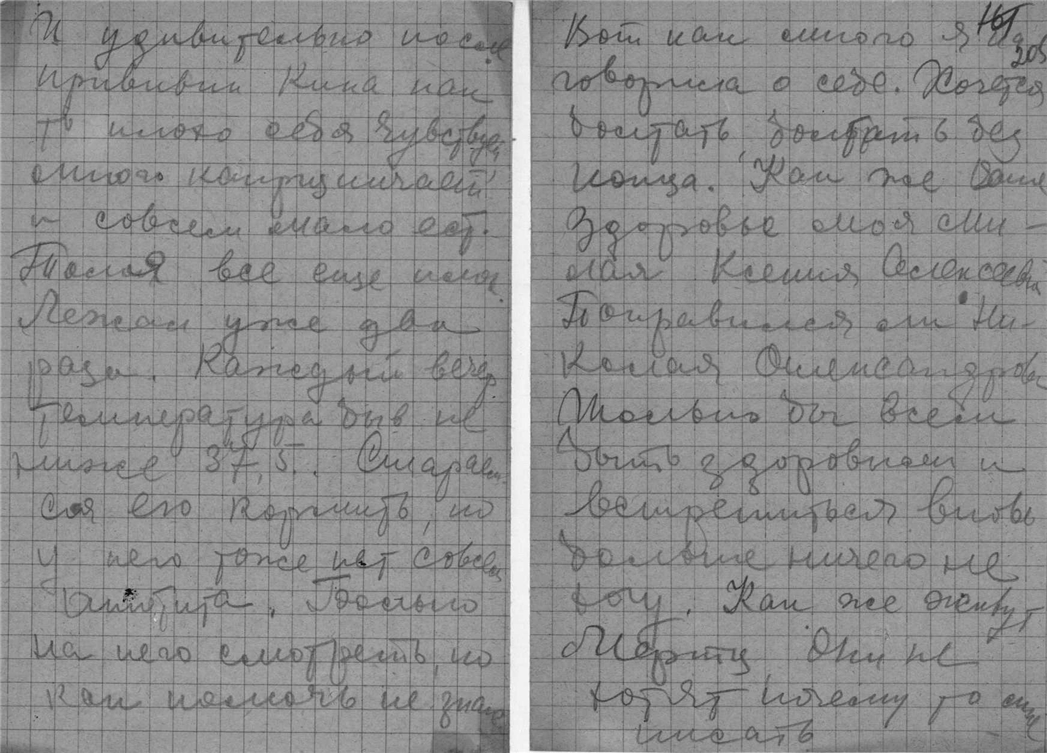 И удивительно после
прививки Кика как
то плохо себя чувствует
много капризничает
и совсем мало ест.
Толя все еще
Лежал уже два
раза. Каждый вечер
температура быв не
ниже 37,5. Старaем
ся его кормить, но
у него тоже нет совсем
аппетита. Больно
на него смотреть, но
как помочь не знаю
Вот как много я на
говорила о себе. Хочется
болтать, болтать без
конца. Как же Ваше
здоровье моя ми-
лая Ксения Алексеевна
Поправился ли Ни-
колая Александрови
Только бы всем
быть здоровыми и
встретиться вновь
больше ничего не
хочу. Как же живут
Мерты Они не
хотят почему то мне
писать